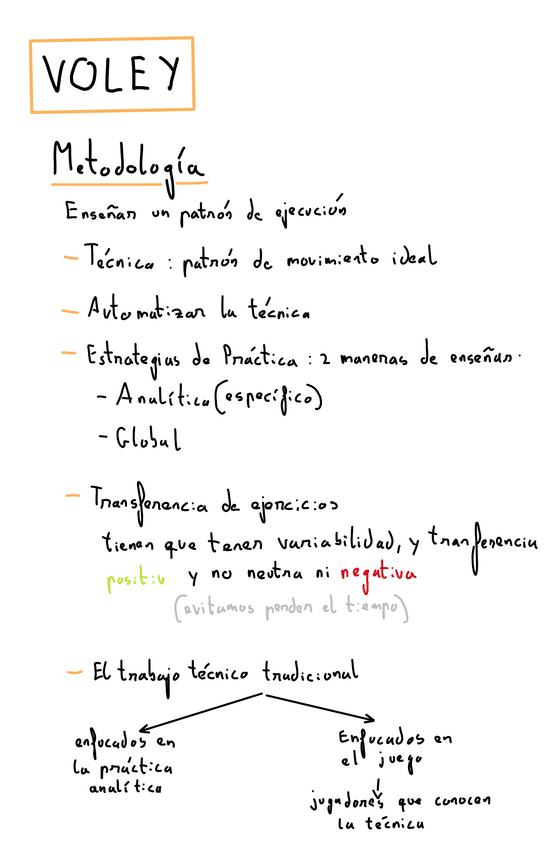 VOLEY
Metodología
Enseñar un patrón de ejecución
- Técnica : patrón de movimiento ideal
- Automatizar la técnica
- Estrategias de Práctica : 2 maneras de enseñar.
- Analítica (específico)
- Global
- Transferencia de ejercicios
tienen que tener variabilidad, y tranferencia
positiv y no neutra ni negativa
(evitamos perder el tiempo)
- El trabajo técnico tradicional
enfocados en
la práctica
analítica
Enfocados en
el juego
jugadores que conocen
la técnica